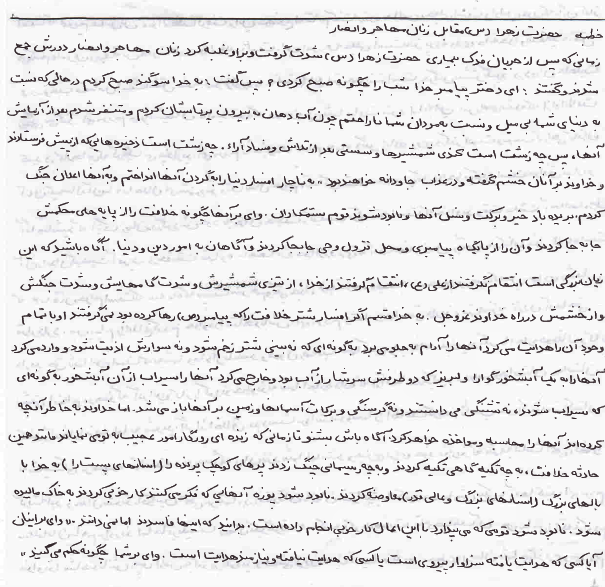 خطبه حضرت زهرا (س) مقابل زنان مهاجر و انصار
زمانی که پس از جریان فدک بیماری حضرت زهرا (س) شدت گرفت و بر او غلبه کرد زنان مهاجر و انصار دورش جمع
شدند و گفتند : ای دختر پیامبر خدا شب را چگونه صبح کردی ؟ پس گفت : به خدا سوگند صبح کردم در حالی که نسبت
به دنیای شما بی میل و نسبت به مردان شما ناراحتم چون آب دهان به بیرون پرتابشان کردم و متنفر شدم بعد از آزمایش
آنها، پس چه زشت است کندی شمشیرها و سستی بعد از تلاش و فساد آراء، چه زشت است ذخیره هایی که از پیش فرستادند
و خداوند بر آنان خشم گرفته و در عذاب جاودانه خواهند بود ، به ناچار افسار دنیا را به گردن آنها انداختم و به آنها اعلان جنگ
کردم، بریده باد خیر و برکت و نسل آنها و نابود شوند قوم ستمکاران . وای بر آنها چگونه خلافت را از پایه های محکمش
جا به جا کردند و آن را از پایگاه پیامبری و محل نزول وحی جابجا کردند و آگاهان به امور دین و دنیا . آگاه باشید که این
زیان بزرگی است انتقام نگرفتند از علی (ع)، انتقام نگرفتند از خدا ، از تیزی شمشیرش و شدت گام هایش و شدت جنگش
و از خشمش در راه خداوند عزوجل . به خدا قسم اگر افسار شتر خلافت را که پیامبر (ص) رها کرده بود می گرفتند او با تمام
وجود آن را هدایت می کرد آنها را آرام به جلو می برد به گونه ای که نه بینی شتر زخم شود و نه سوارش اذیت شود و وارد می کرد
آنها را به یک آبشخور گوارا و لبریز که دو طرفش سرشار از آب بود و خارج می کرد آنها را سیراب از آن آبشخور به گونه ای
که سیراب شوند، نه تشنگی می دانستند و نه گرسنگی و برکات آسمانها و زمین بر آنها باز می شد. اما خداوند به خاطر آنچه
کرده اند آنها را محاسبه و مواخذه خواهد کرد آگاه باش بشنو تا زمانی که زنده ای روزگار امور عجیب به تو می نمایاند مانند همین
حادثه خلافت ، به چه تکیه گاهی تکیه کردند و به چه ریسمانی چنگ زدند پرهای کوچک پرنده را (انسانهای پست را) به خدا با
بالهای بزرگ (انسانهای بزرگ و عالی قدر) معاوضه کردند . نابود شود پوزه آنهایی که فکر می کنند کار خوبی کردند به خاک مالیده
شود . نابود شود قومی که می پندارد با این اعمال کار خوبی انجام داده است . بدانید که اینها فاسدند اما نمی دانند . « وای بر اینان
آیا کسی که هدایت یافته سزاوار پیروی است یا کسی که هدایت نیافته و نیازمند هدایت است . وای بر شما چگونه حکم می کنید »